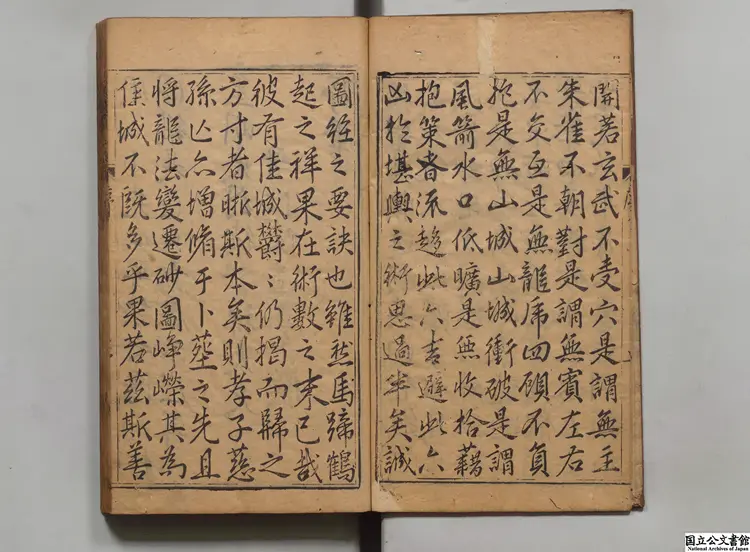 開若玄武不受穴是謂無主
朱雀不朝對是謂無賓左右
不交互是無龍虎四顧不負
抱是無山城山城衝破是謂
風箭水口低曠是無收拾藉
抱策者流趍此六吉避此六
凶於堪輿之術思過半矣誠
圖經之要訣也雖然馬蹄鶴
起之祥果在術數之末已哉
彼有佳城欝〻仍揭而歸之
方寸者晰斯本矣則孝子慈
孫亡亽增脩于卜塟之先且
將龍法變遷砂圖崢嶸其為
佳城不既多乎果若茲斯善
序
国立公文書館
National Archives of Japan